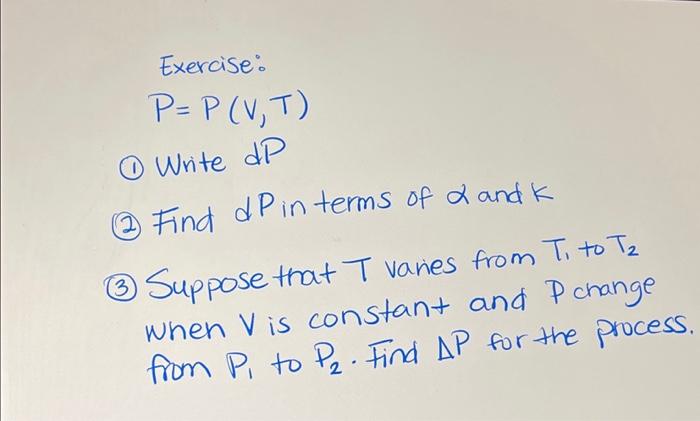 Exercise:
P = P (V, T)
① Write dP
② Find dP in terms of α and κ
③ Suppose that T varies from T₁ to T₂
when V is constant and P change
from P₁ to P₂. Find ΔP for the process.